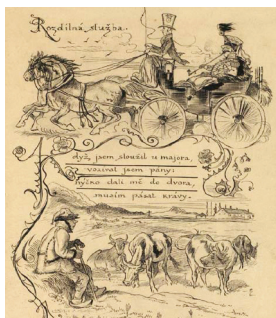 Rozdílná služba.
dyž jsem sloužil u majora,
vozíval jsem pány:
hyčko dali mě do dvora,
musím pásat krávy.